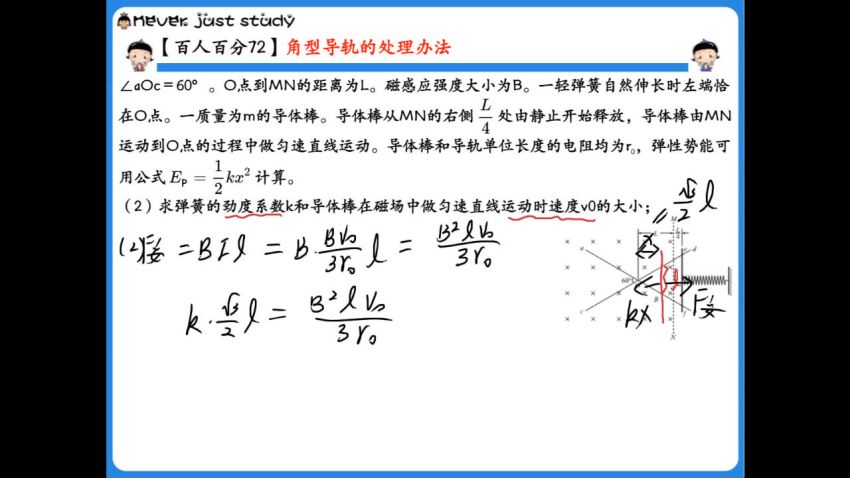 Never just study
【百人百分72】角型导轨的处理办法
∠aOc=60°。O点到MN的距离为L。磁感应强度大小为B。一轻弹簧自然伸长时左端恰
在O点。一质量为m的导体棒。导体棒从MN的右侧 L/4 处由静止开始释放,导体棒由MN
运动到O点的过程中做匀速直线运动。导体棒和导轨单位长度的电阻均为r₀,弹性势能可
用公式 Eₚ = 1/2 kx² 计算。
(2)求弹簧的劲度系数k和导体棒在磁场中做匀速直线运动时速度v0的大小;
√3/2 l
(2) F安 = BIl = B · Bv₀/3r₀ l = B²lv₀/3r₀
k · √3/2 l = B²lv₀/3r₀
x
60°
kx
F安
M
N
a
c
d